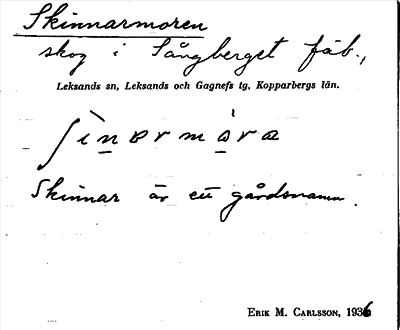 Skinnarmoren
skog i Sångberget fäb.,
Leksands sn, Leksands och Gagnefs tg, Kopparbergs län.
Skinnar är ett gårdsnamn.
ERIK M. CARLSSON, 1936